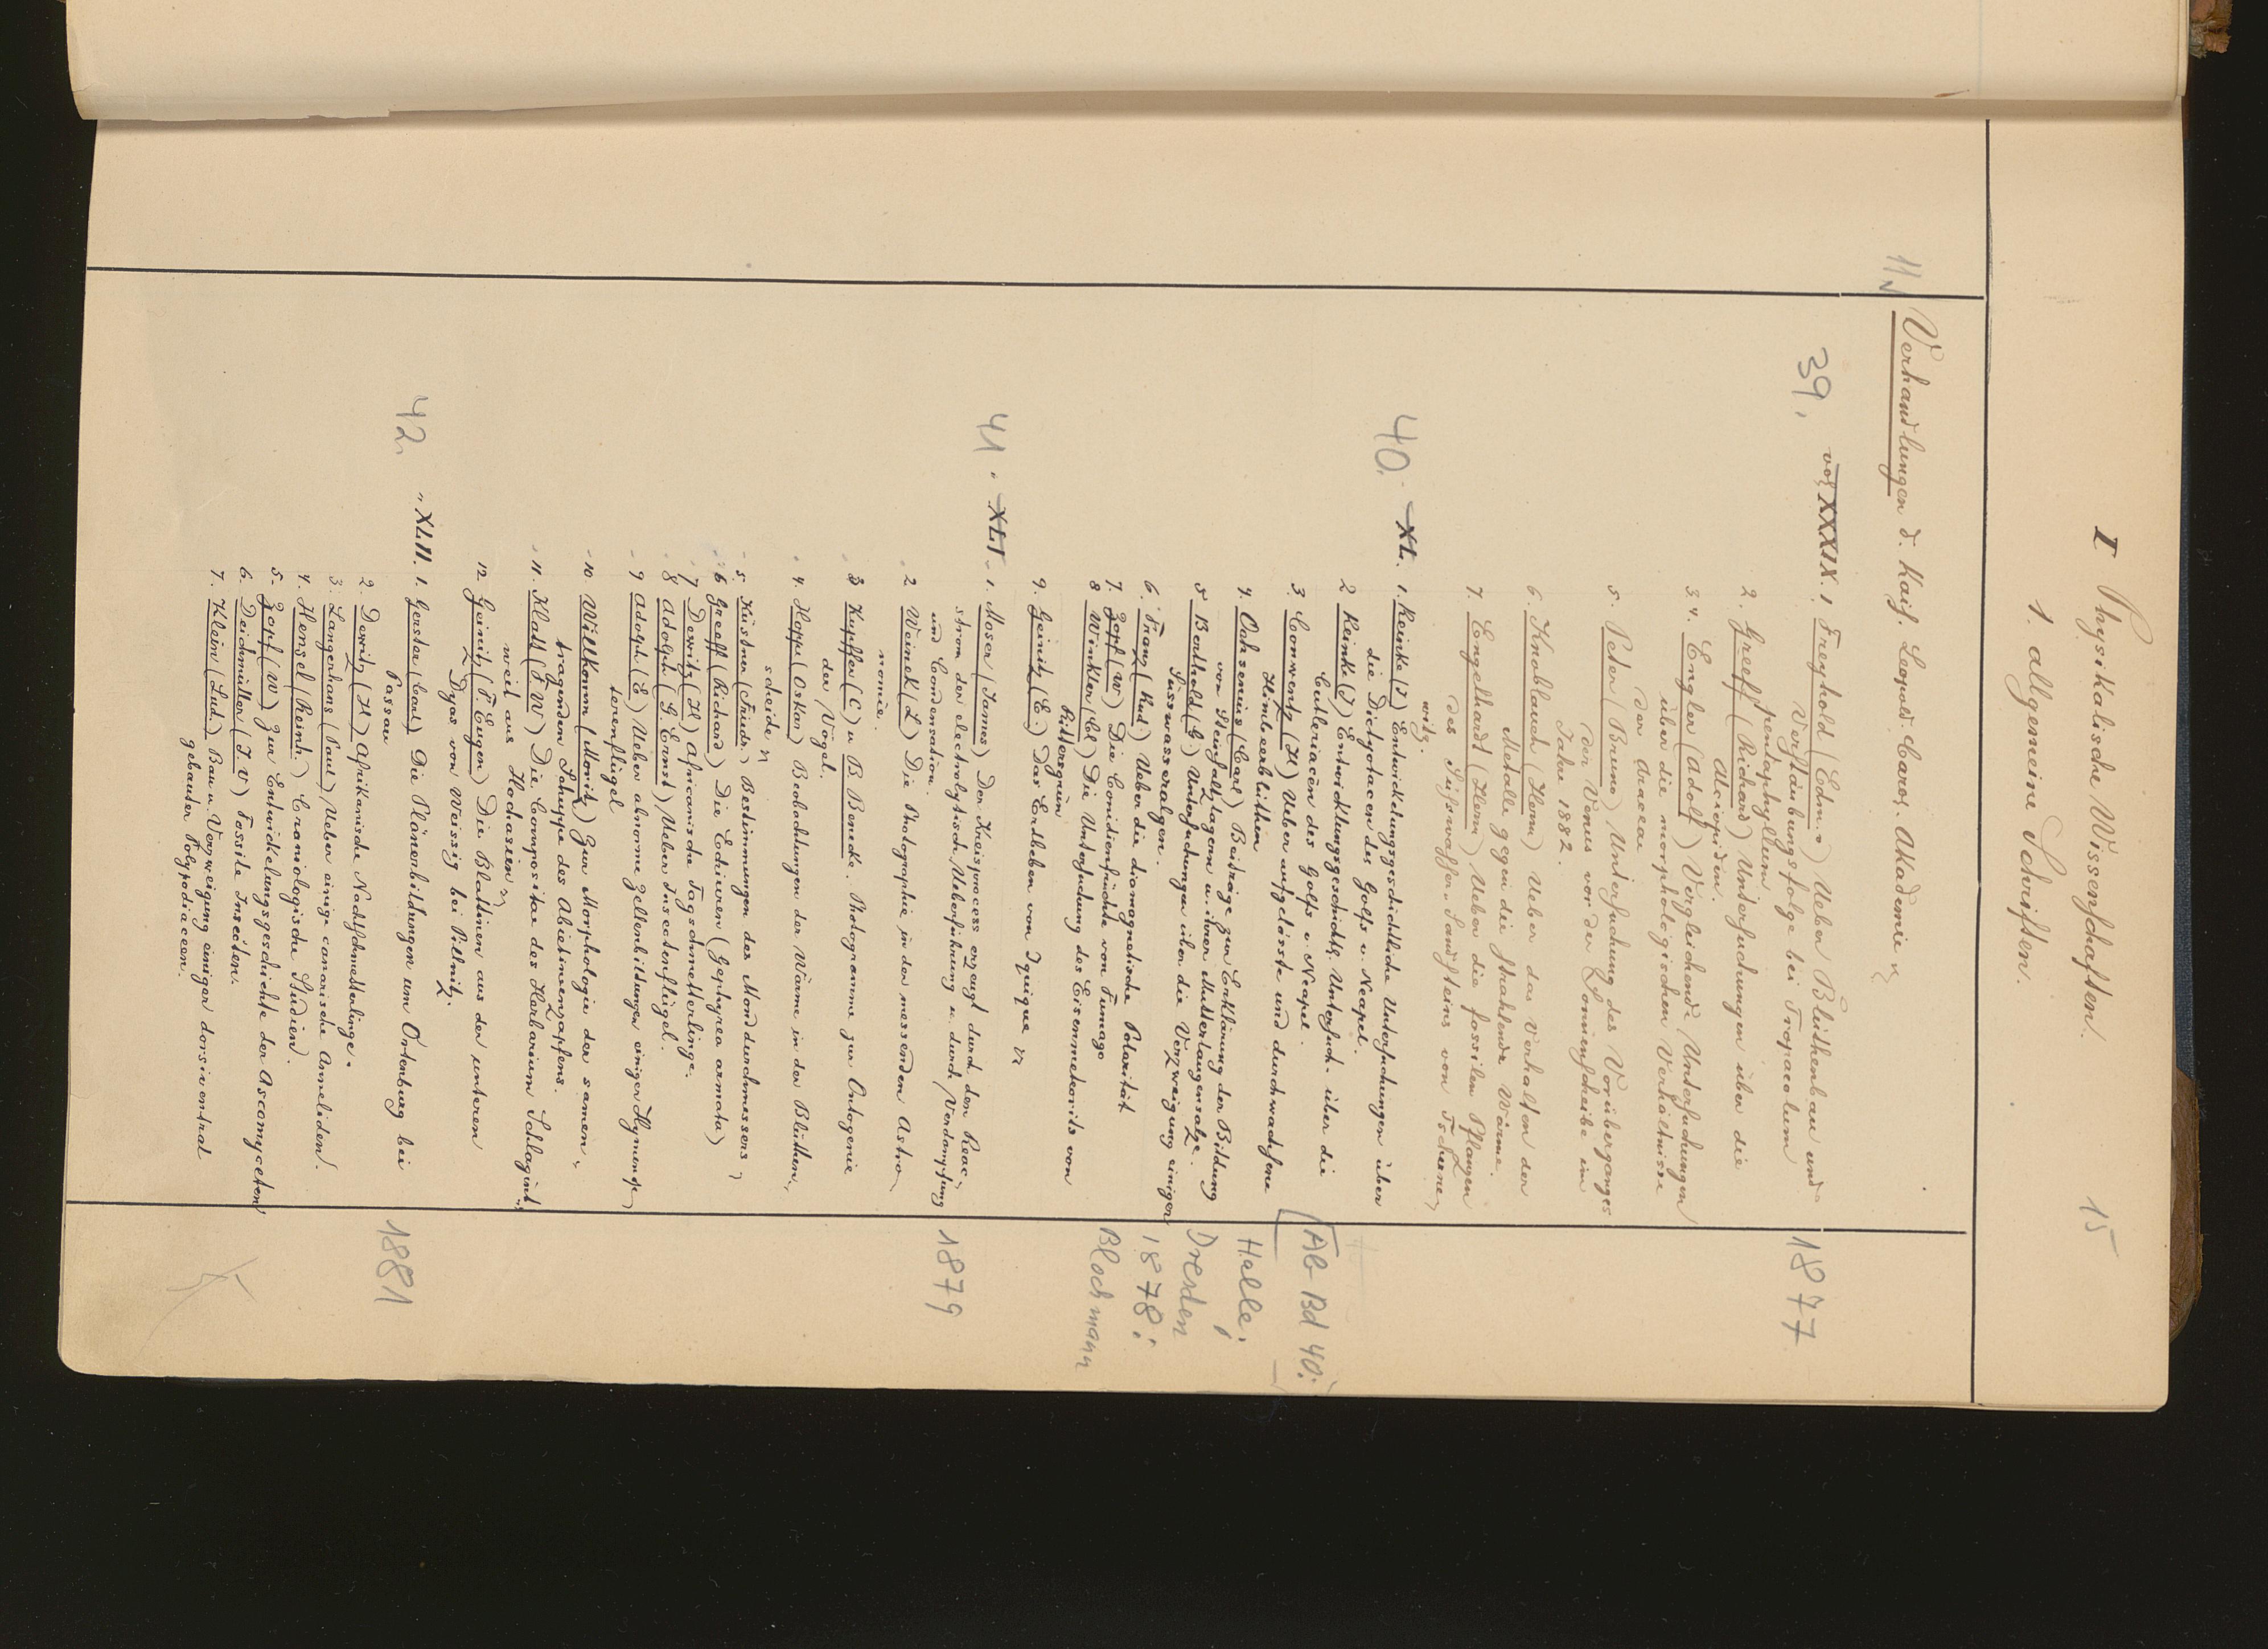 I Physikalische Wissenschaften. 15
1. allgemeine Schriften.
11 Verhandlungen d. Kais. Leopold. Carol. Akademie
39. vol XXXIX. 1, Freyhold (Edm.) Ueber Blüthenbau und 1877
Verstäubungsfolge bei Tropaeolum
pentaphyllum
2. Greeff (Richard) Untersuchungen über die
Alciopiden.
3.4. Engler (Adolf) Vergleichende Untersuchungen
über die morphologischen Verhältnisse
der Araceae
5. Peter (Bruno) Untersuchung des Vorüberganges
der Venus vor der Sonnenscheibe im
Jahre 1882.
6. Knoblauch (Herm) Ueber das Verhalten der
Metalle gegen die strahlende Wärme.
7. Engelhardt (Herm) Ueber die fossilen Pflanzen
des Süsswasser-Sandsteins von Tscherne
witz.
40. XL. 1. Reinke (J) Entwickelungsgeschichtliche Untersuchungen über
die Dictyotaceen des Golfs v. Neapel.
2 Reinke (J) Entwicklungsgeschichtl. Untersuch. über die
Cutleriaceen des Golfs v. Neapel.
3. Conwentz (H) Ueber aufgelösste und durchwachsene
Himbeerblüthen
4. Ochsenius (Carl) Beiträge zur Erklärung der Bildung
von Steinsalzlagern u. ihrer Mutterlaugensalze.
5 Berthold (G) Untersuchungen über die Verzweigung einiger
Süsswasseralgen.
6. Franz (Rud.) Ueber die diamagnetische Polarität
7. Zopf (W) Die Conidienfrüchte von Fumago
8 Winkler (Cl) Die Untersuchung des Eisenmeteorits von
Rittersgrün
9. Geinitz (E.) Das Erdbeben von Iquique
Ab Bd 40:
Halle;
Dresden
1878:
Blochmann
41. XLI. 1. Moser (James) Der Kreisprocess erzeugt durch den Reac- 1879
strom der electrolytisch. Ueberführung u. durch Verdampfung
und Condensation.
2 Weinek (L) Die Photographie in der messenden Astro
nomie.
3 Kupffer (C) u B. Benecke. Photogramme zur Ontogenie
der Vögel.
4. Hoppe (Oskar) Beobachtungen der Wärme in der Blüthen-
scheide
5. Küstner (Friedr.) Bestimmungen des Monddurchmessers
6 Greeff (Richard) Die Echiuren (Gephyrea armata)
7 Dewitz (H) Africanische Tagschmetterlinge.
8 Adolph (G. Ernst) Ueber Insectenflügel.
9 Adolph (E) Ueber abnorme Zellenbildungen einiger Hymenop
terenflügel
10 Willkomm (Moritz) Zur Morphologie der samen-
tragenden Schuppe des Abietineenzapfens.
11. Klatt (F W) Die Compositae des Herbarium Schlagint-
weit aus Hochasien
12 Geinitz (F Eugen) Die Blattinen aus der unteren
Dyas von Weissig bei Pillnitz.
42. XLII. 1. Gerster (Carl) Die Plänerbildungen um Ortenburg bei 1881
Passau
2. Dewitz (H) Afrikanische Nachtschmetterlinge.
3. Langerhans (Paul) Ueber einige canarische Anneliden.
4. Hensel (Reinh.) Craniologische Studien.
5. Zopf (W) Zur Entwickelungsgeschichte der Ascomyceten
6. Deichmüller (J V) Fossile Insecten.
7. Klein (Lud.) Bau u. Verzweigung einiger dorsiventral
gebauter Polypodiaceen.